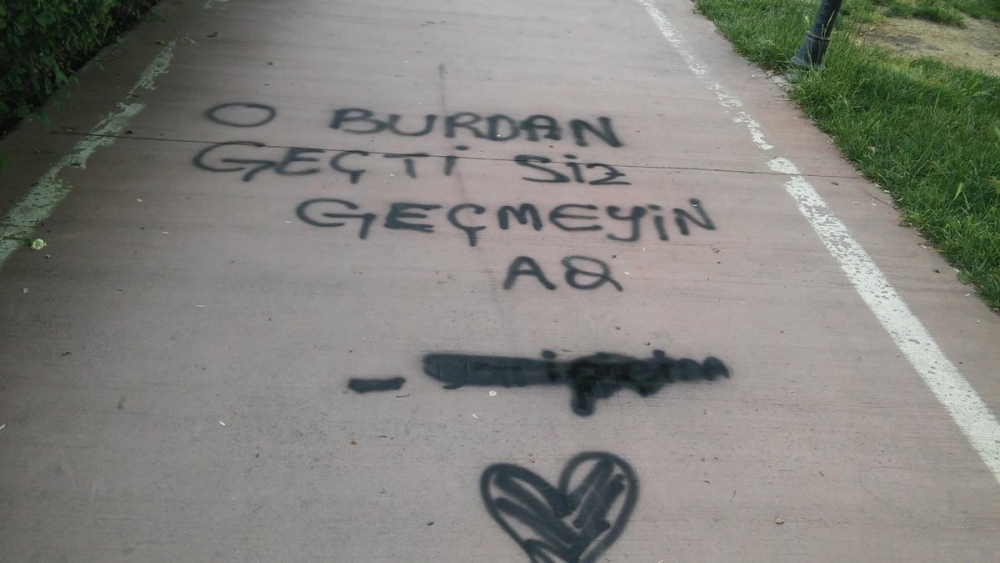 O BURDAN
GEÇTİ SİZ
GEÇMEYİN
AQ